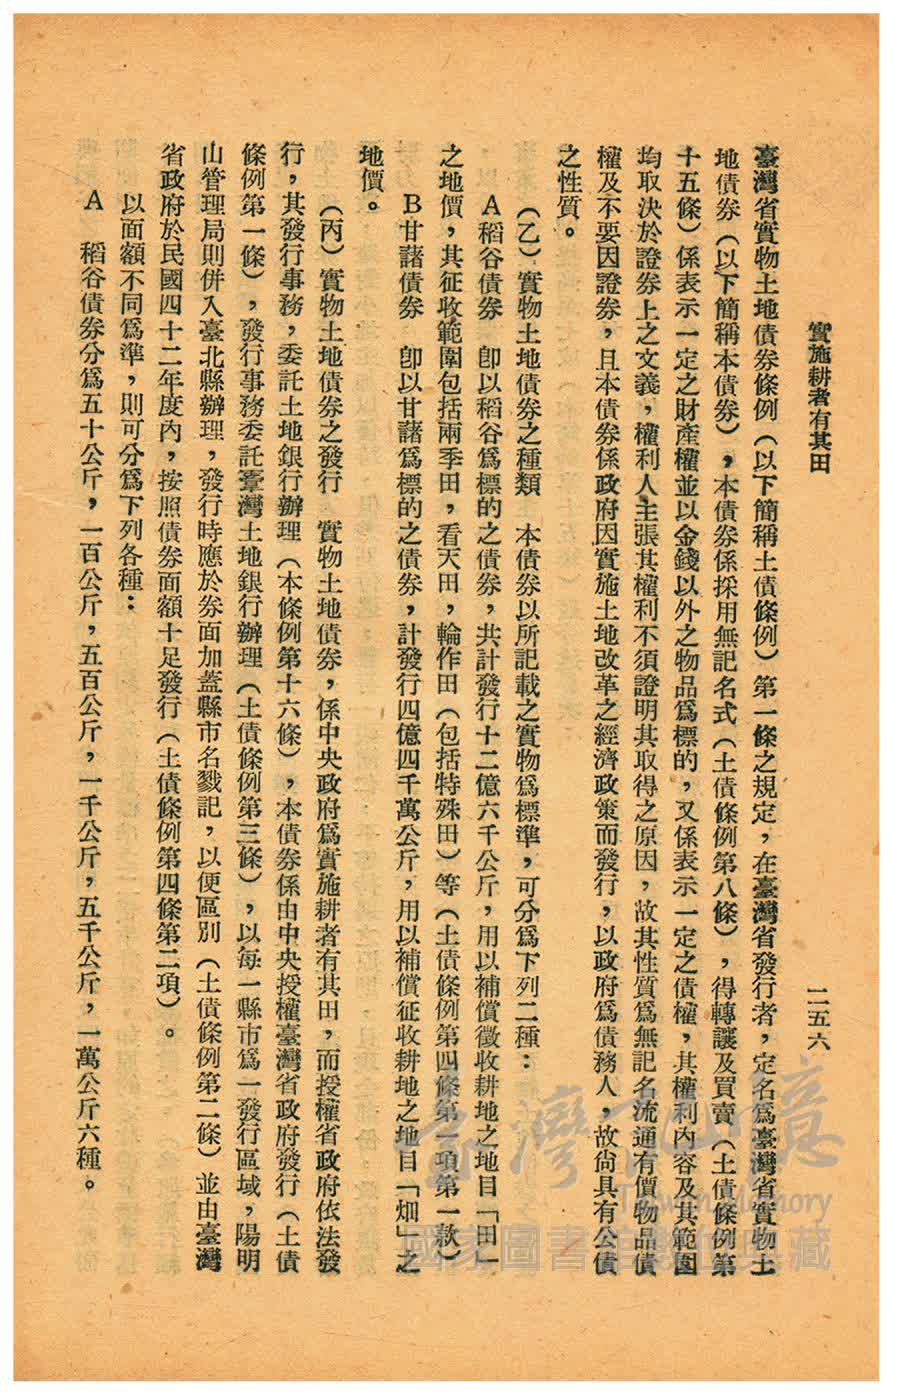 實施耕者有其田
二五六
臺灣省實物土地債券條例（以下簡稱土債條例）第一條之規定，在臺灣省發行者，定名爲臺灣省實物土
地債券（以下簡稱本債券），本債券係採用無記名式（土債條例第八條），得轉讓及買賣（土債條例第
十五條）係表示一定之財產權並以金錢以外之物品爲標的，又係表示一定之債權，其權利內容及其範圍
均取決於證券上之文義，權利人主張其權利不須證明其取得之原因，故其性質爲無記名流通有價物品債
權及不要因證券，且本債券係政府因實施土地改革之經濟政策而發行，以政府爲債務人，故尙具有公債
之性質。
（乙）實物土地債券之種類　本債券以所記載之實物爲標準，可分爲下列二種：
A 稻谷債券　卽以稻谷爲標的之債券，共計發行十二億六千公斤，用以補償徵收耕地之地目「田」
之地價，其征收範圍包括兩季田，看天田，輪作田（包括特殊田）等（土債條例第四條第一項第一款）
B 甘藷債券　卽以甘藷爲標的之債券，計發行四億四千萬公斤，用以補償征收耕地之地目「畑」之
地價。
（丙）實物土地債券之發行　實物土地債券，係中央政府爲實施耕者有其田，而授權省政府依法發
行，其發行事務，委託土地銀行辦理（本條例第十六條），本債券係由中央授權臺灣省政府發行（土債
條例第一條），發行事務委託臺灣土地銀行辦理（土債條例第三條），以每一縣市爲一發行區域，陽明
山管理局則併入臺北縣辦理，發行時應於券面加蓋縣市名戳記，以便區別（土債條例第二條）並由臺灣
省政府於民國四十二年度內，按照債券面額十足發行（土債條例第四條第二項）。
以面額不同爲準，則可分爲下列各種：
A　稻谷債券分爲五十公斤，一百公斤，五百公斤，一千公斤，五千公斤，一萬公斤六種。
臺灣記憶
Taiwan Memory
國家圖書館數位典藏